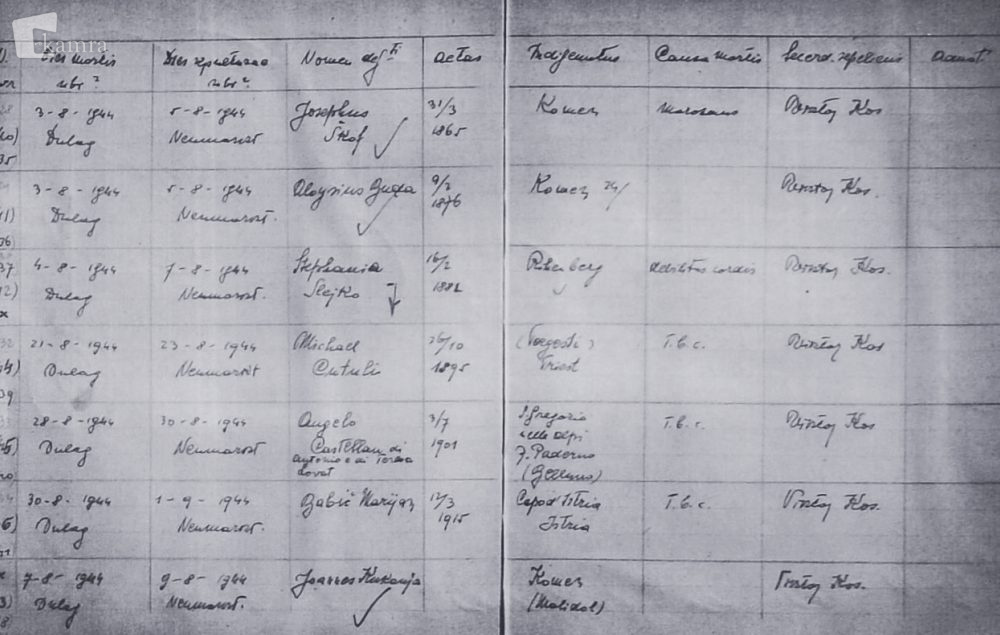 kamra
Dies mortis Dies sepulturae Nomen def.ti aetas Indigenatus Causa mortis Sacerd. sepeliens
ubi? ubi?
3-8-1944 5-8-1944 Josephus 31/3 Komen marasmus Kos
Dulag Neumarkt Škof 1865
3-8-1944 5-8-1944 Aloysius 9/2 Komen 24/ Kos.
Dulag Neumarkt. 1876
4-8-1944 7-8-1944 Stephania 16/2 debilitas cordis Kos.
Dulag Neumarkt. Slejko 1882
21-8-1944 23-8-1944 Michael 26/10 T.b.c. Kos
Dulag Neumarkt 1895 Triest
28-8-1944 30-8-1944 Angelo 3/7 S. Gregorio T.b.c. Kos
Dulag Neumarkt Castellan di 1901 nelle alpi
Antonio e di Teresa F. Paderno
Lovat (Belluno)
30-8-1944 1-9-1944 Babič Marijan 12/3 Capod'Istria T.b.c. Kos.
Dulag Neumarkt. 1915 Istria
7-8-1944 9-8-1944 Joannes Kukanja Komen Kos.
Dulag Neumarkt. (Malidol)